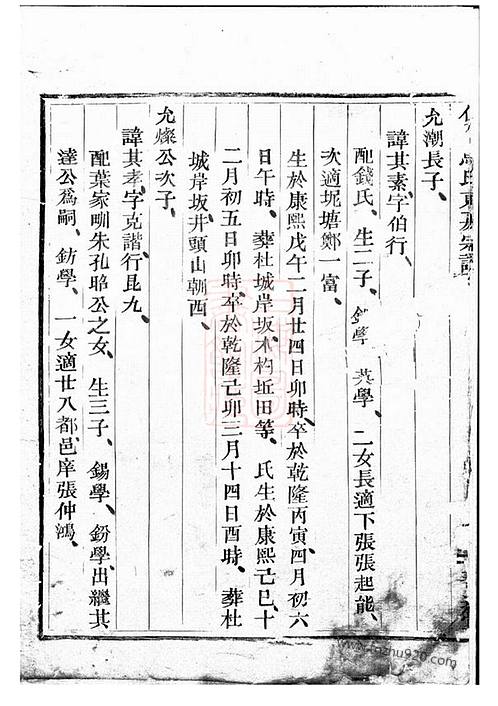 氏東
宗譜
允潮長子、
諱其素、字伯行、
配錢氏、生二子、學、英學、二女長適下張張起能、
次適坭塘鄭一富、
生於康熙戊午二月廿四日卯時、卒於乾隆丙寅四月初六
日午時、葬杜城岸坂木杓坵田等、氏生於康熙己巳十
二月初五日卯時、卒於乾隆己卯三月十四日酉時、葬杜
城岸坂井頭山朝西、
允燦公次子、
諱其孝、字克諧、行昆九、
配葉家㽞朱孔昭公之女、生三子、錫學、鈖學、出繼其
達公爲嗣、鈁學、一女適廿八都邑庠張仲鴻、
www.fgzhu920.com